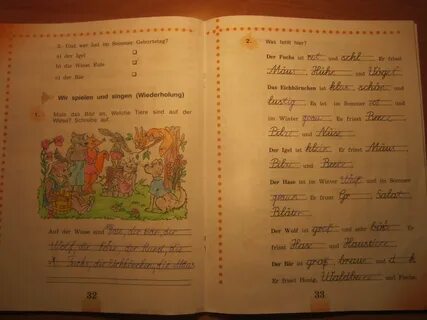 3. Und wer hat im Sommer Geburtstag?
a) der Igel
b) die weise Eule
c) der Bär
Wir spielen und singen (Wiederholung)
1. Male das Bild an. Welche Tiere sind auf der
Wiese? Schreibe auf.
Auf der Wiese sind Hase, der Bär, der
Wolf, der Hund, die
Fuchs, die Eichhörnchen, die Maus
32
2. Was fehlt hier?
Der Fuchs ist rot und schl Er frisst
Mäuse, Hühner und Vögel
Das Eichhörnchen ist klein, schön und
lustig. Es ist im Sommer rot und
im Winter grau. Es frisst Beeren,
Pilze und Nüsse
Der Igel ist klein. Er frisst Mäuse,
Pilze und Beeren
Der Hase ist im Winter und im Sommer
grau. Er frisst Salat
Blätter
Der Wolf ist groß und sehr böse. Er
frisst Hase und Haustiere
Der Bär ist groß, braun und
Er frisst Honig, Waldbeeren und Fische.
33